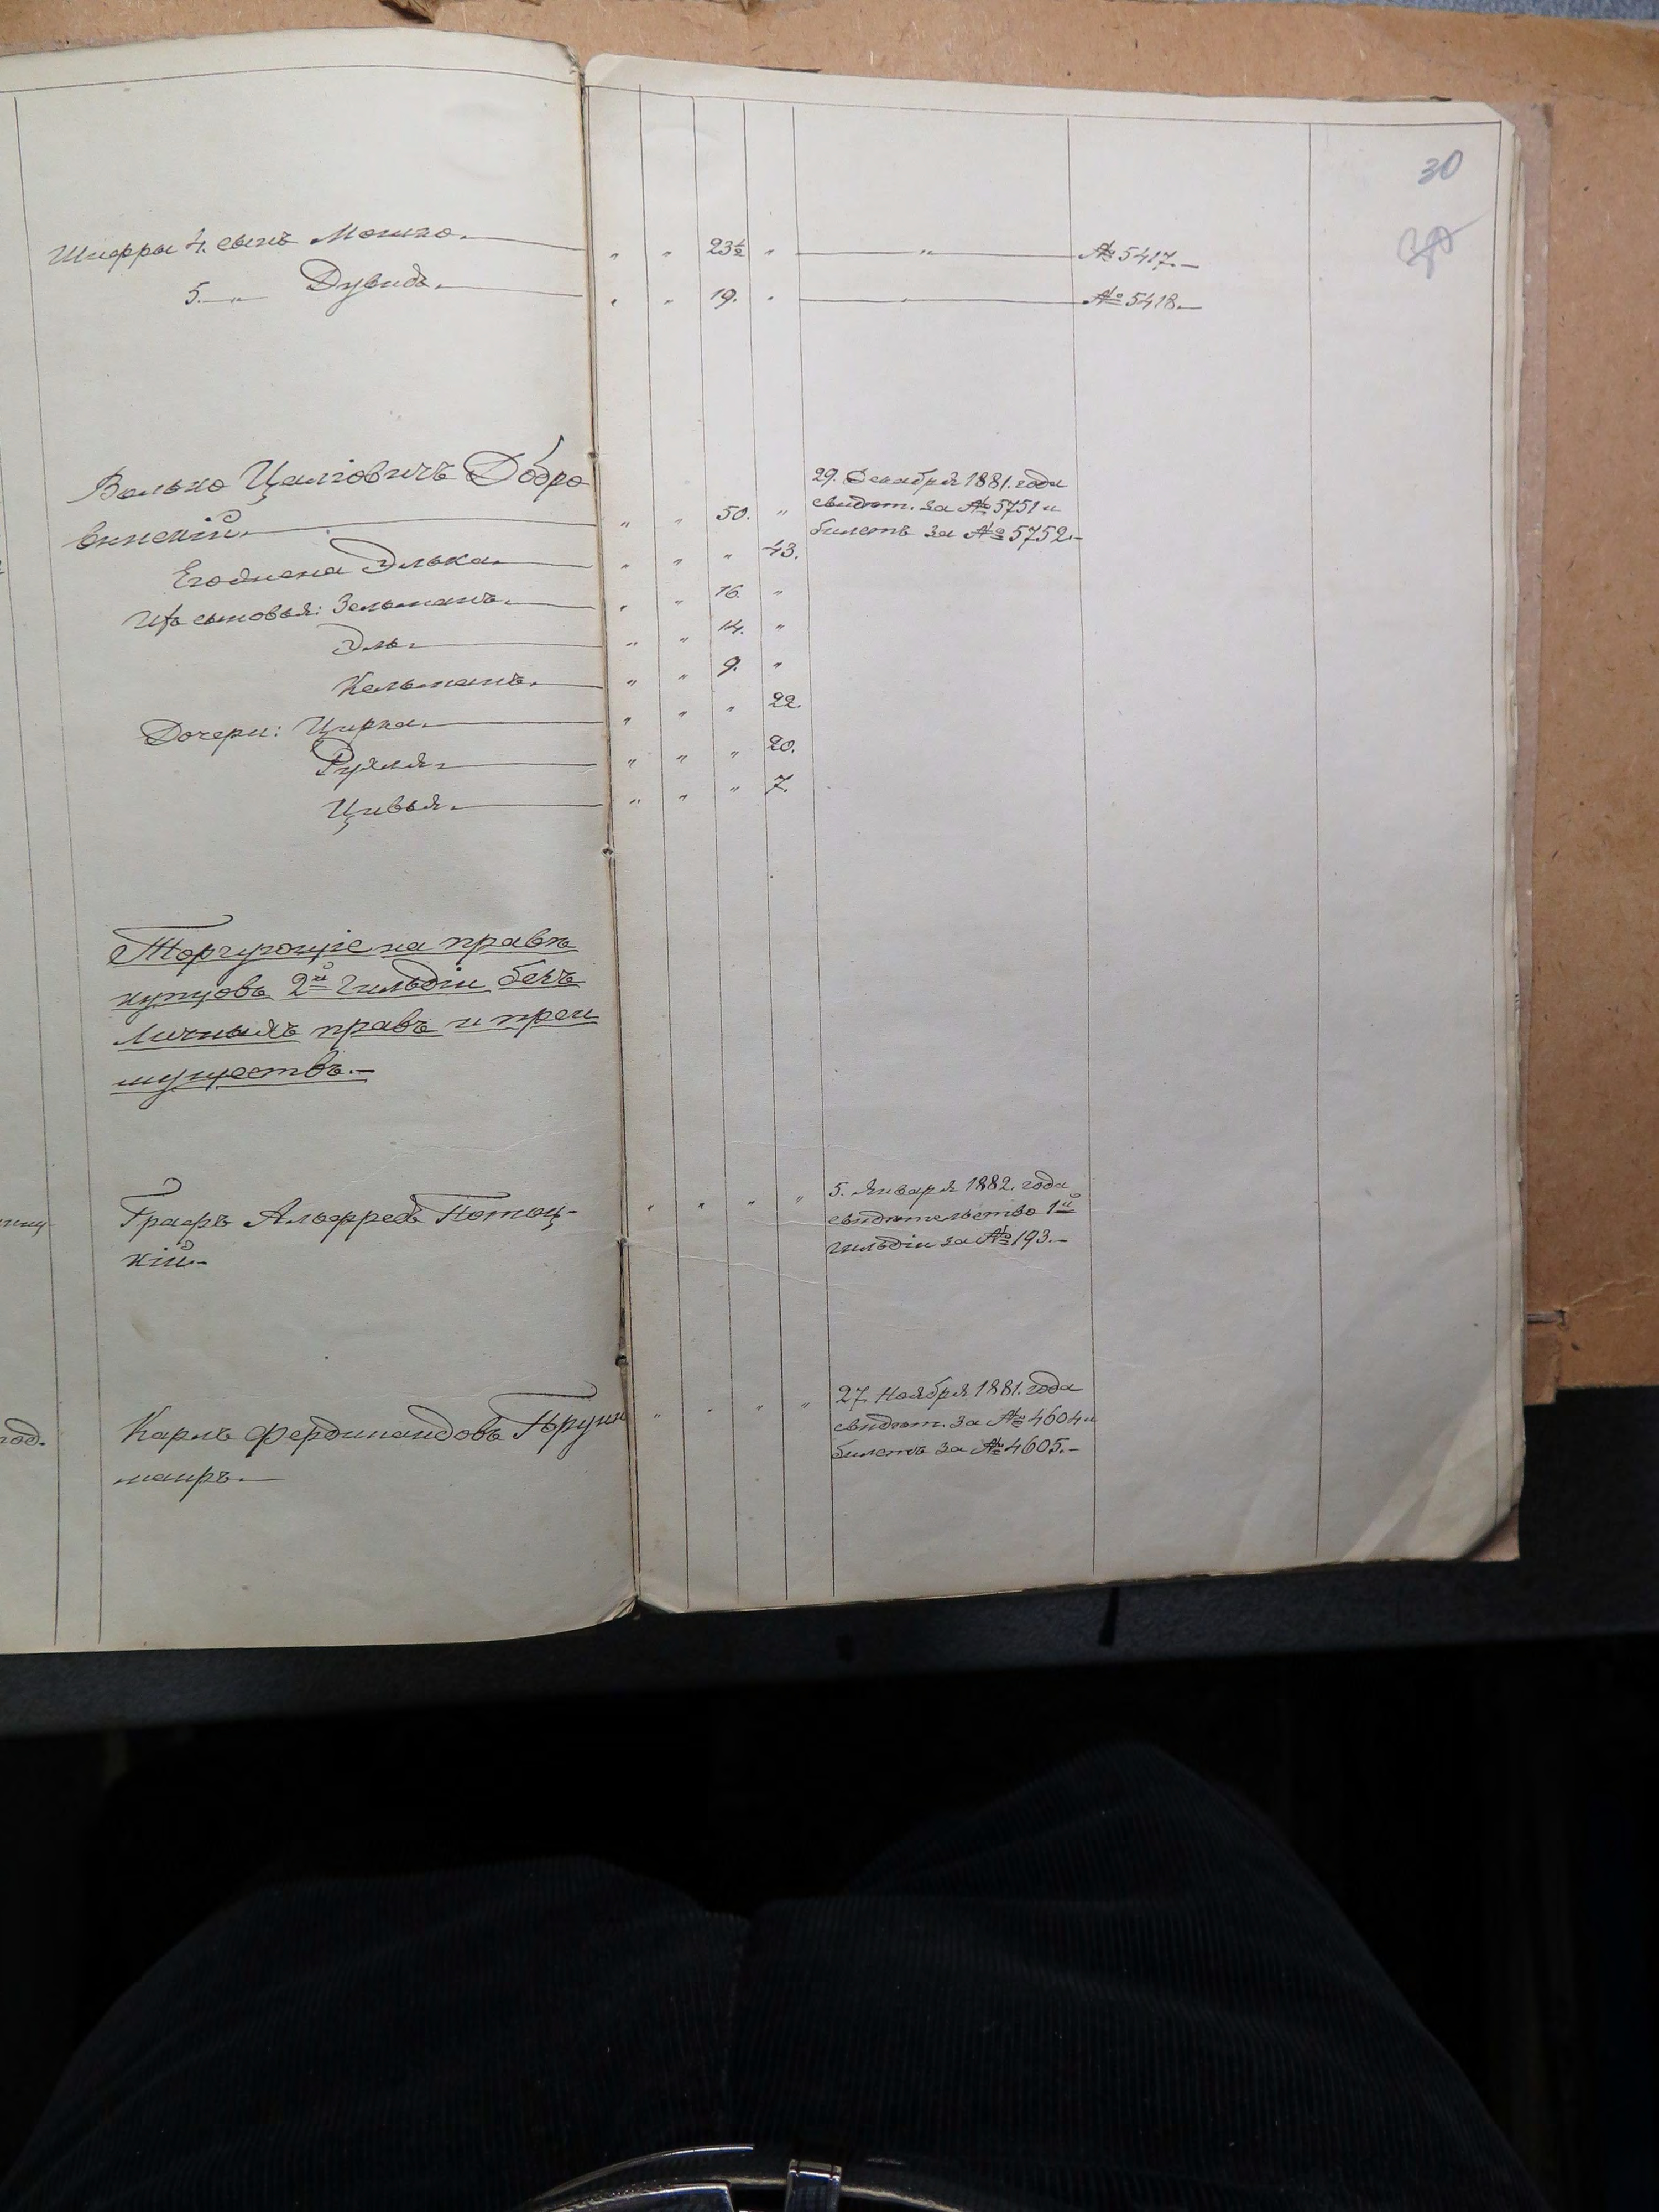 30
Шифры 4. сынъ Мошко. " " 23½ " " № 5417.
5. " Дувидъ. " " 19. " " № 5418.
Волько Цалiовичъ Добро
29. Декабря 1881. года
свидѣт. за № 5751 и
винскiй. " " 50. "
билетъ за № 5752.
Его жена Элька. " " " 43.
Ихъ сыновья: Зельманъ. " " 16. "
Эль. " " 14. "
Кельманъ. " " 9. "
Дочери: Цирка. " " " 22.
Рухля. " " " 20.
Цивья. " " " 7.
Торгующiе на правѣ
купцовъ 2й гильдiи безъ
личныхъ правъ и преи
муществъ.
Графъ Альфредъ Потоц-
кiй.
" " " "
5. Января 1882. года
свидѣтельство 1й
гильдiи за № 193.
Карлъ Фердинандовъ
" " " "
27. Ноября 1881. года
свидѣт. за № 4604 и
билетъ за № 4605.
год.